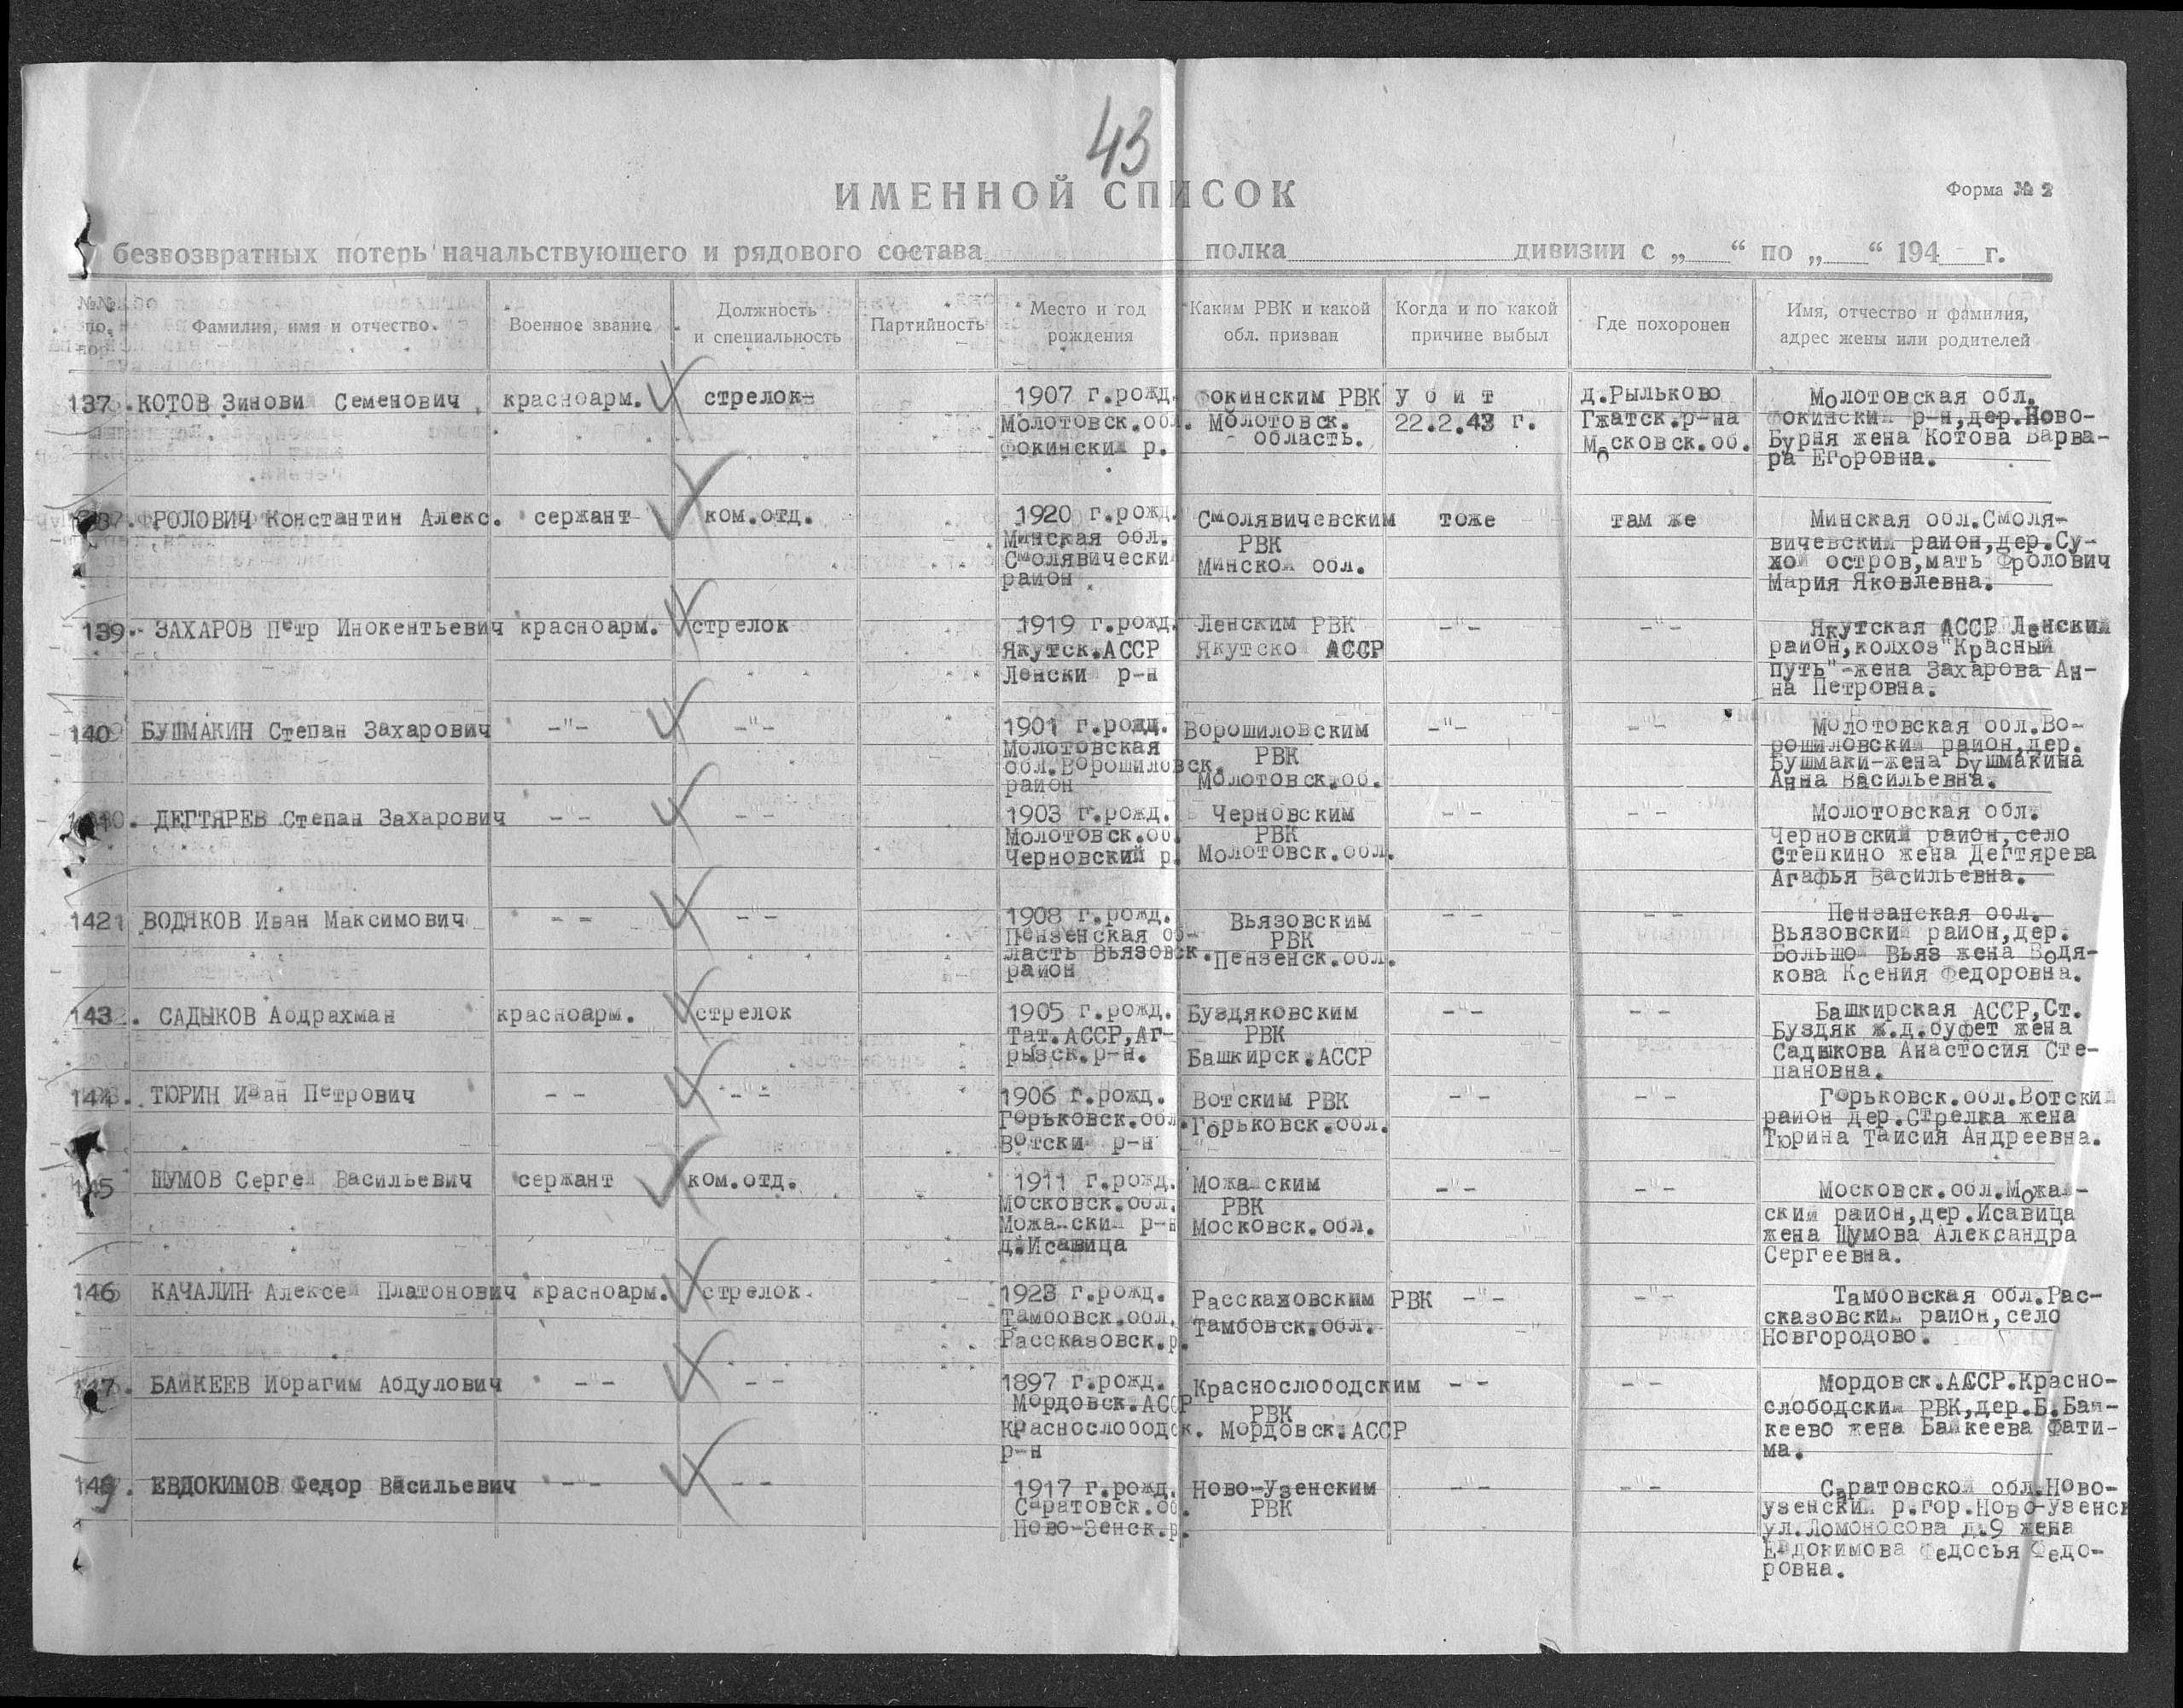 43
ИМЕННОЙ СПИСОК
Форма № 2
безвозвратных потерь начальствующего и рядового состава полка дивизии с „ “ по „ “ 194 г.
№№ по пор.
Фамилия, имя и отчество
Военное звание
Должность и специальность
Партийность
Место и год рождения
Каким РВК и какой обл. призван
Когда и по какой причине выбыл
Где похоронен
Имя, отчество и фамилия, адрес жены или родителей
137. КОТОВ Зинови Семенович красноарм. стрелок 1907 г.рожд. Фокинским РВК У б и т д.Рыльково Молотовская обл.
Молотовск.обл. Молотовск. 22.2.43 г. Гжатск.р-на Фокинский р-н,дер.Ново-
Фокинский р. область. Московск.об. Бурня жена Котова Варва-
ра Егоровна.
РОЛОВИЧ Константин Алекс. сержант ком.отд. 1920 г.рожд. Смолявичевским тоже там же Минская обл.Смоля-
Минская обл. РВК вичевский район,дер.Су-
Смолявически Минской обл. хой остров,мать Фролович
район Мария Яковлевна.
139. ЗАХАРОВ Петр Инокентьевич красноарм. стрелок 1919 г.рожд. Ленским РВК -"- -"- Якутская АССР Ленский
Якутск.АССР Якутско АССР район,колхоз"Красный
Ленски р-н путь"-жена Захарова Ан-
на Петровна.
140 БУШМАКИН Степан Захарович -"- -"- 1901 г.рожд. Ворошиловским -"- - - Молотовская обл.Во-
Молотовская РВК рошиловский район,дер.
обл.Ворошиловск. Молотовск.об. Бушмаки-жена Бушмакина
район Анна Васильевна.
ДЕГТЯРЕВ Степан Захарович - - - - 1903 г.рожд. Черновским -"- -"- Молотовская обл.
Молотовск.об. РВК Черновский район,село
Черновский р. Молотовск.обл. Степкино жена Дегтярева
Агафья Васильевна.
1421 ВОДЯКОВ Иван Максимович - - -"- 1908 г.рожд. Вьязовским -"- - - Пензанская обл.
Пензенская об- РВК Вьязовский район,дер.
ласть Вьязовск. Пензенск.обл. Большой Вьяз жена Водя-
район кова Ксения Федоровна.
143 . САДЫКОВ Абдрахман красноарм. стрелок 1905 г.рожд. Буздяковским -"- - - Башкирская АССР,Ст.
Тат.АССР,Аг- РВК Буздяк ж.д.буфет жена
рызск.р-н. Башкирск.АССР Садыкова Анастосия Сте-
пановна.
144. ТЮРИН Иван Петрович - - -"- 1906 г.рожд. Вотским РВК -"- -"- Горьковск.обл.Вотский
Горьковск.обл. Горьковск.обл. район дер.Стрелка жена
Вотский р-н Тюрина Таисия Андреевна.
145 ШУМОВ Сергей Васильевич сержант ком.отд. 1911 г.рожд. Можайским -"- -"- Московск.обл.Можай-
Московск.обл. РВК ский район,дер.Исавица
Можайский р-н Московск.обл. жена Шумова Александра
д.Исавица Сергеевна.
146 КАЧАЛИН Алексей Платонович красноарм. стрелок. 1923 г.рожд. Рассказовским РВК -"- -"- Тамбовская обл.Рас-
Тамбовск.обл. Тамбовск.обл. сказовский район,село
Рассказовск.р. Новгородово.
147. БАЙКЕЕВ Ибрагим Абдулович -"- - - 1897 г.рожд. Краснослободским -"- -"- Мордовск.АССР.Красно-
Мордовск.АССР РВК слободский РВК,дер.Б.Бай-
Краснослободск. Мордовск.АССР кеево жена Байкеева Фати-
р-н ма.
ЕВДОКИМОВ Федор Васильевич -"- - - 1917 г.рожд. Ново-Узенским -"- -"- Саратовской обл.Ново-
Саратовск.об. РВК узенский р.гор.Ново-Узенск
Ново-Зенск.р. ул.Ломоносова д.9 жена
Евдокимова Федосья Федо-
ровна.